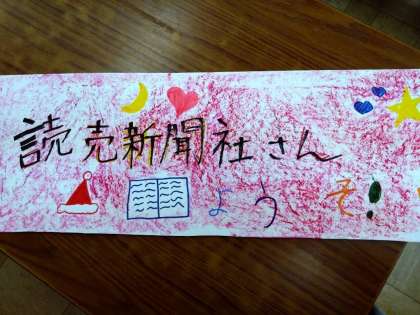 読売新聞社さん
ようそ!